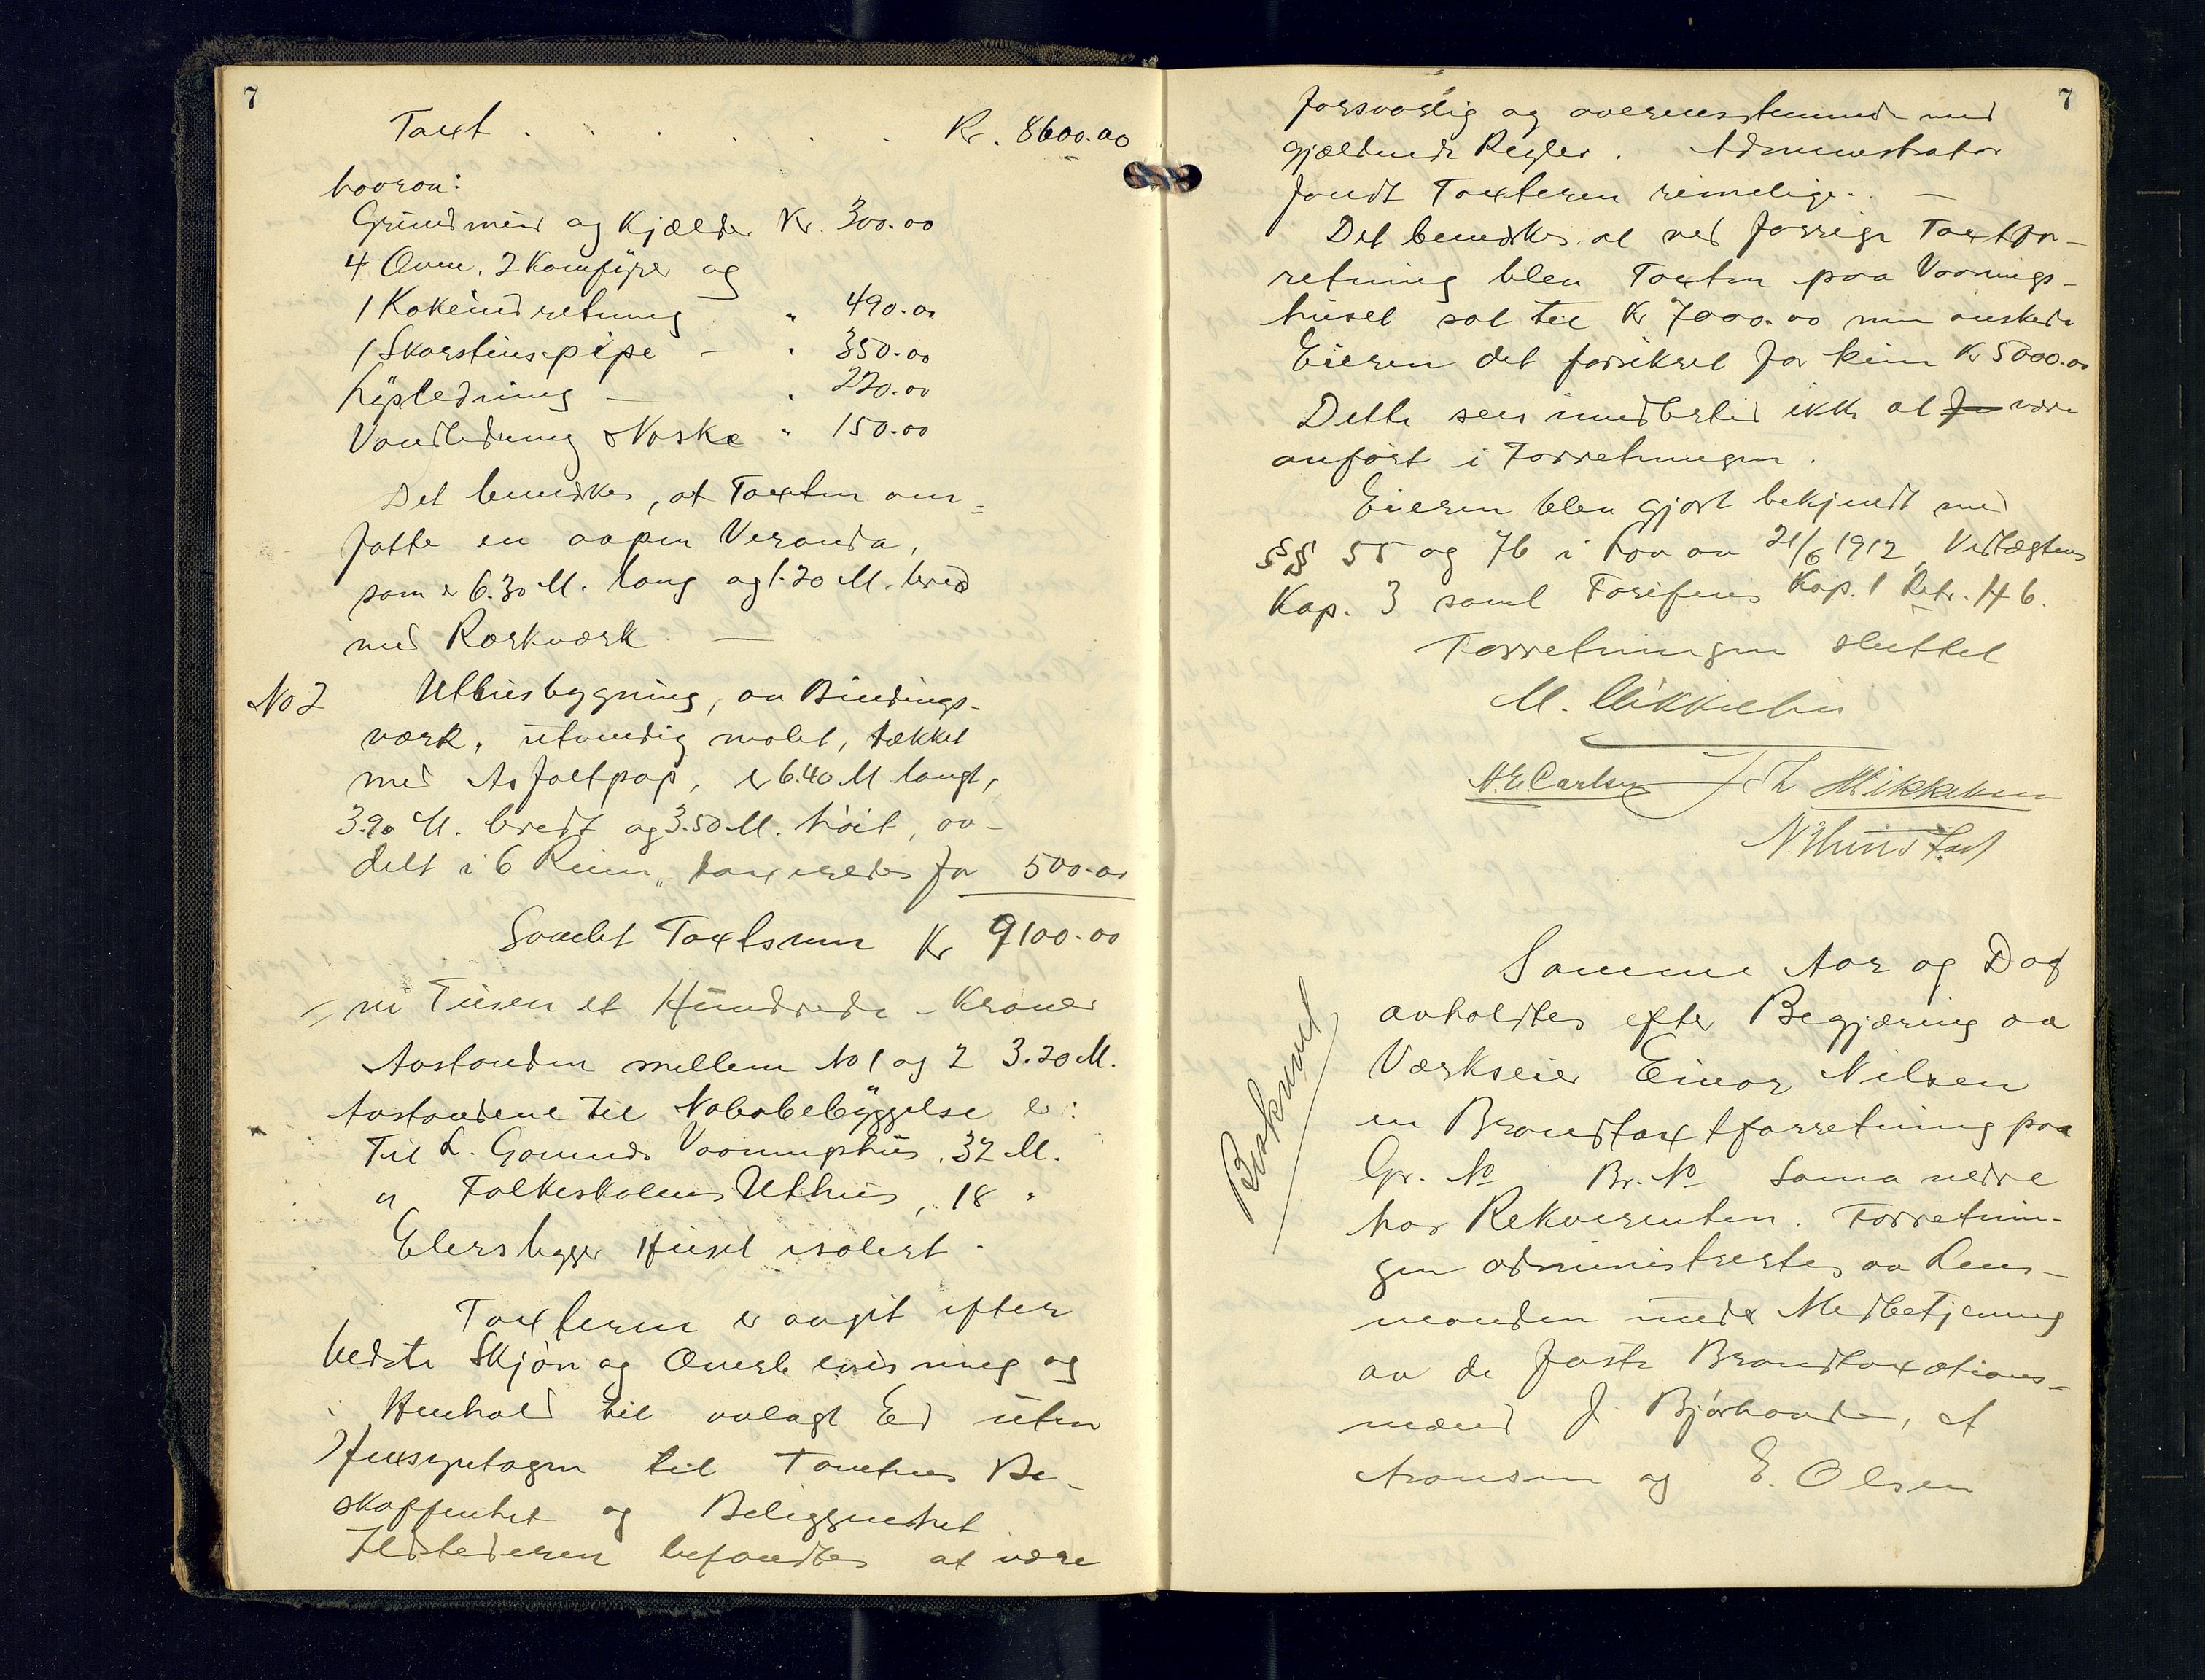 7
Taxt . . . . . . Kr. 8600.00
hvorav:
Grundmur og Kjælder Kr. 300.00
4 Ovne, 2 Komfyrer og
1 Kokeindretning " 490.00
1 Skorstenspipe — " 350.00
Lysledning — " 220.00
Vandledning & Vaske " 150.00
Det bemerkes, at Taxten om=
fatte en aapen Veranda,
som er 6.30 M. lang og 1.20 M. bred
med Rækværk —
No 2 Uthusbygning, av Bindings-
værk, utvendig malet, tækket
med Asfaltpap, er 6.40 M langt,
3.90 M. bredt og 3.50 M. høit, av-
delt i 6 Rum, taxeredes for 500.00
Samlet Taxtsum Kr 9100.00
ni Tusen et Hundrede - Kroner
Avstanden mellem No 1 og 2 3.20 M.
Avstandene til Nabobebyggelse er:
Til L. Vaaningshus. 32 M.
" Folkeskolens Uthus, 18 "
Ellers ligger Huset isolert.
Taxterne er avgit efter
bedste Skjøn og Overbevisning og
i Henhold til avlagt Ed uten
Hensyntagen til Tomtens Be-
skaffenhet og Beliggenhet.
Ildstederne befandtes at være
7
forsvarlig og overensstemmende med
gjældende Regler. Administrator
fandt Taxterne rimelige. —
Det bemerkes at ved forrige Taxtfor-
retning blev Taxten paa Vaanings-
huset sat til Kr 7000.00 men ønskede
Eieren det forsikret for kun Kr 5000.00
Dette sees imidlertid ikke at være
anført i Forretningen.
Eieren blev gjort bekjendt med
§§ 55 og 76 i Lov av 21/6 1912, Vedtægtens
Kap. 3 samt Tarifens Kap. 1 Litr. H 6.
Forretningen sluttet
M. Mikkelsen
A. E. Carlsen Th Mikkelsen
Samme Aar og Dag
avholdtes efter Begjæring av
Værkseier Einar Nilsen
en Brandtaxtforretning paa
Gr. No Br. No Sama nedre
hos Rekvirenten. Forretnin-
gen administrertes av Lens-
manden under Medbetjening
av de faste Brandtaxations-
mænd J. Bjørhovde, A
Aronsen og E. Olsen
Beskrevet